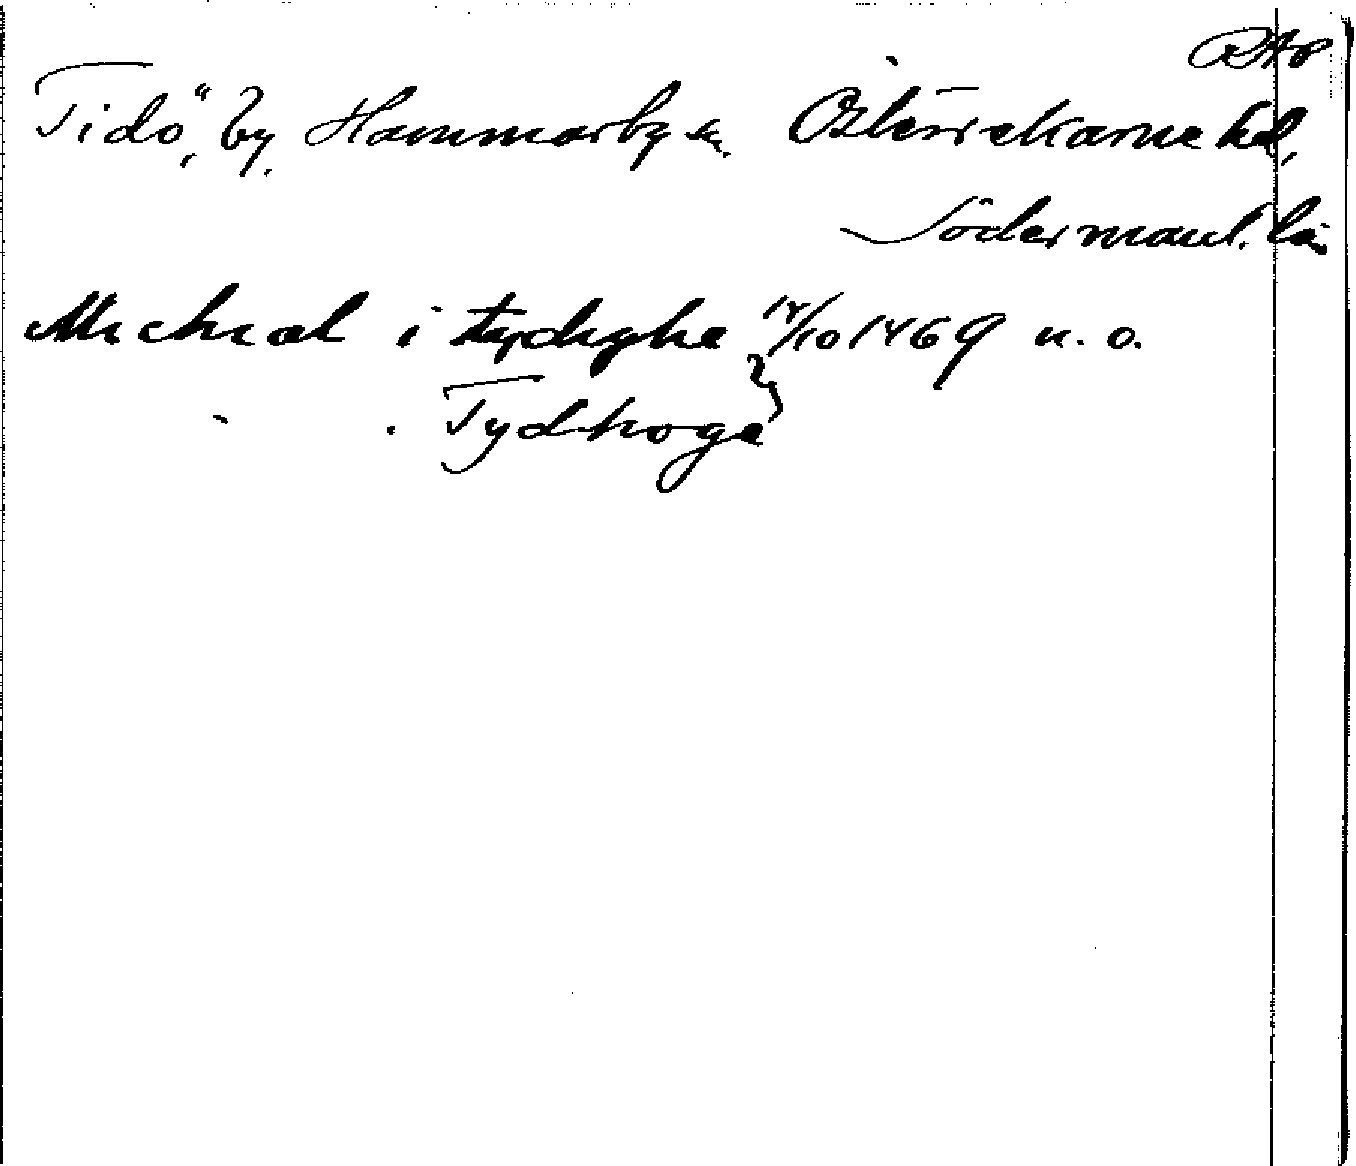 RAp
Tidö, by, Hammarby sn. Österrekarne hd,
Södermanl. län
Michael i tydhyhe 14/10 1469 n. o.
" . Tydhoga